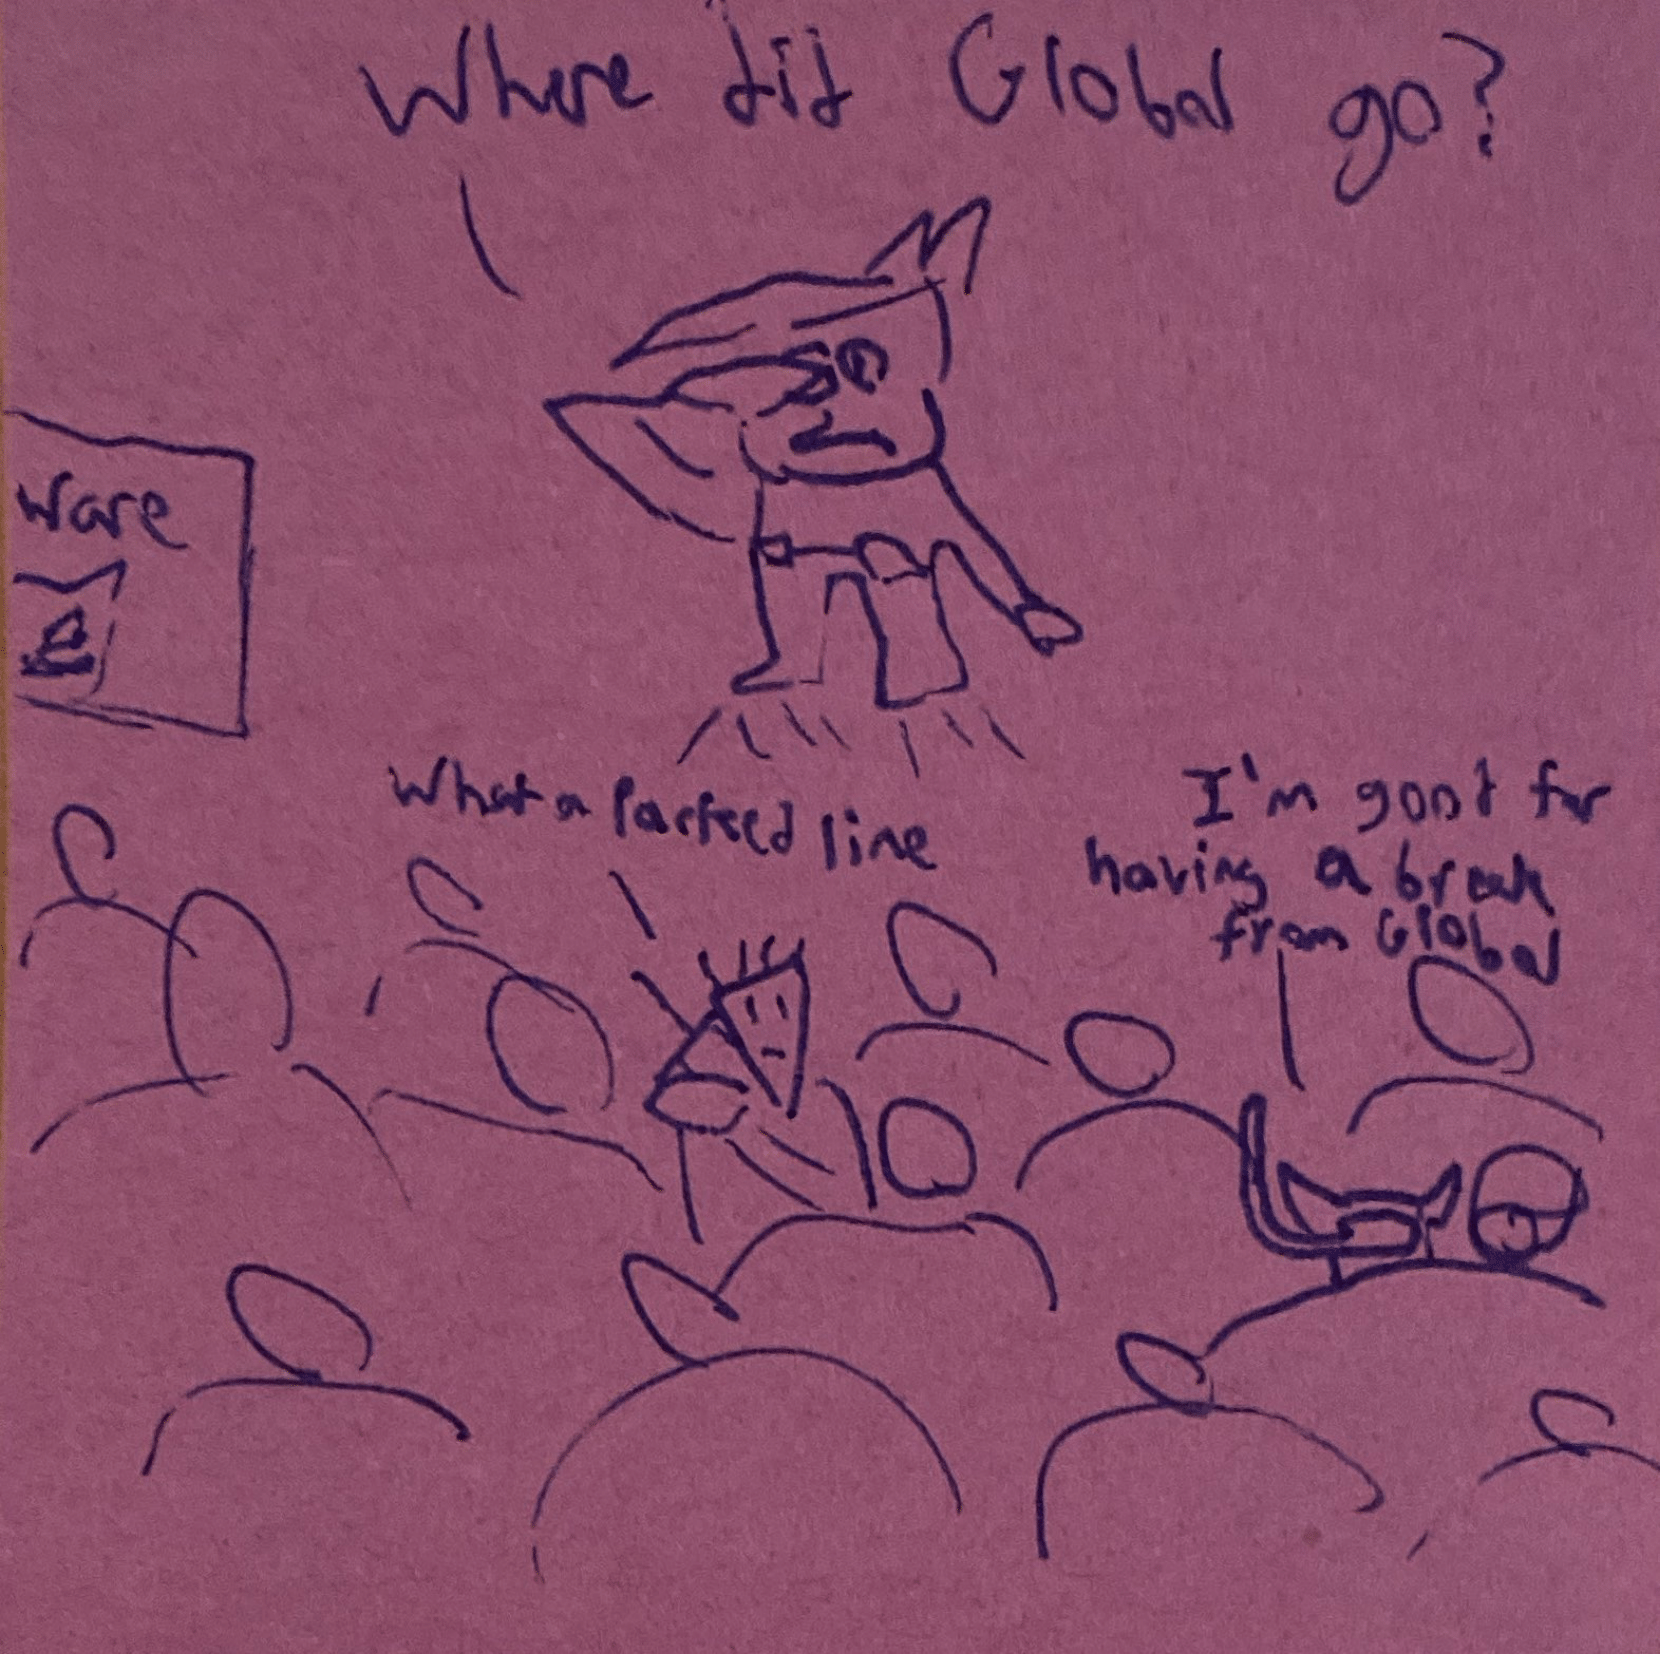 Where did Global go?
Ware
What a Parfeed line
I'm good for
having a break
from Global